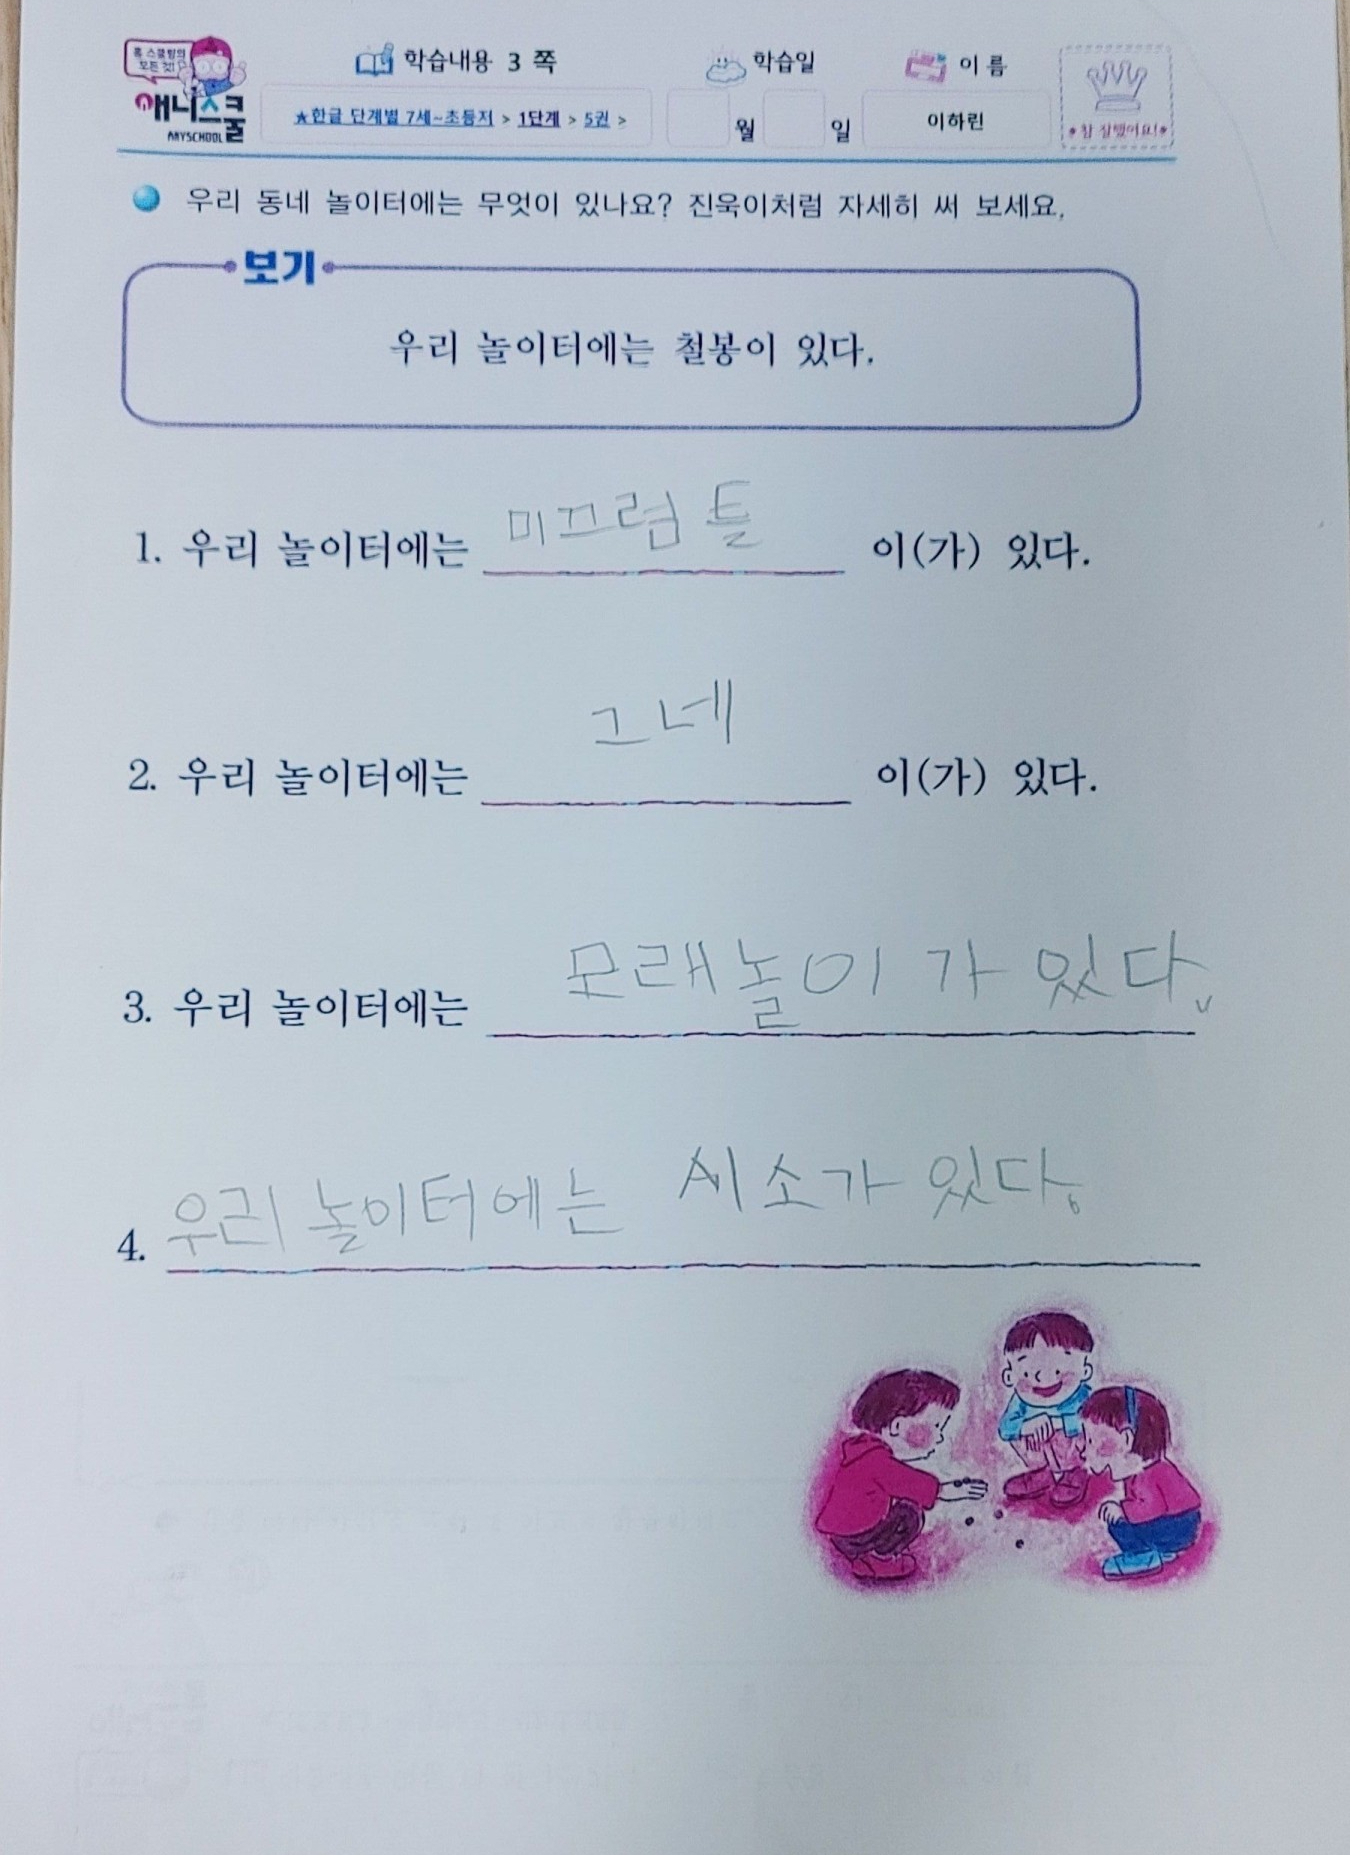 혹 스쿨링의
모든 것!
애니스쿨
ANYSCHOOL
학습내용 3 쪽
학습일
이 름
★한글 단계별 7세~초등저 > 1단계 > 5권 >
월 일
이하린
참 잘했어요!
우리 동네 놀이터에는 무엇이 있나요? 진욱이처럼 자세히 써 보세요.
보기
우리 놀이터에는 철봉이 있다.
1. 우리 놀이터에는 미끄럼틀 이(가) 있다.
2. 우리 놀이터에는 그네 이(가) 있다.
3. 우리 놀이터에는 모래놀이가 있다.
4. 우리 놀이터에는 시소가 있다.